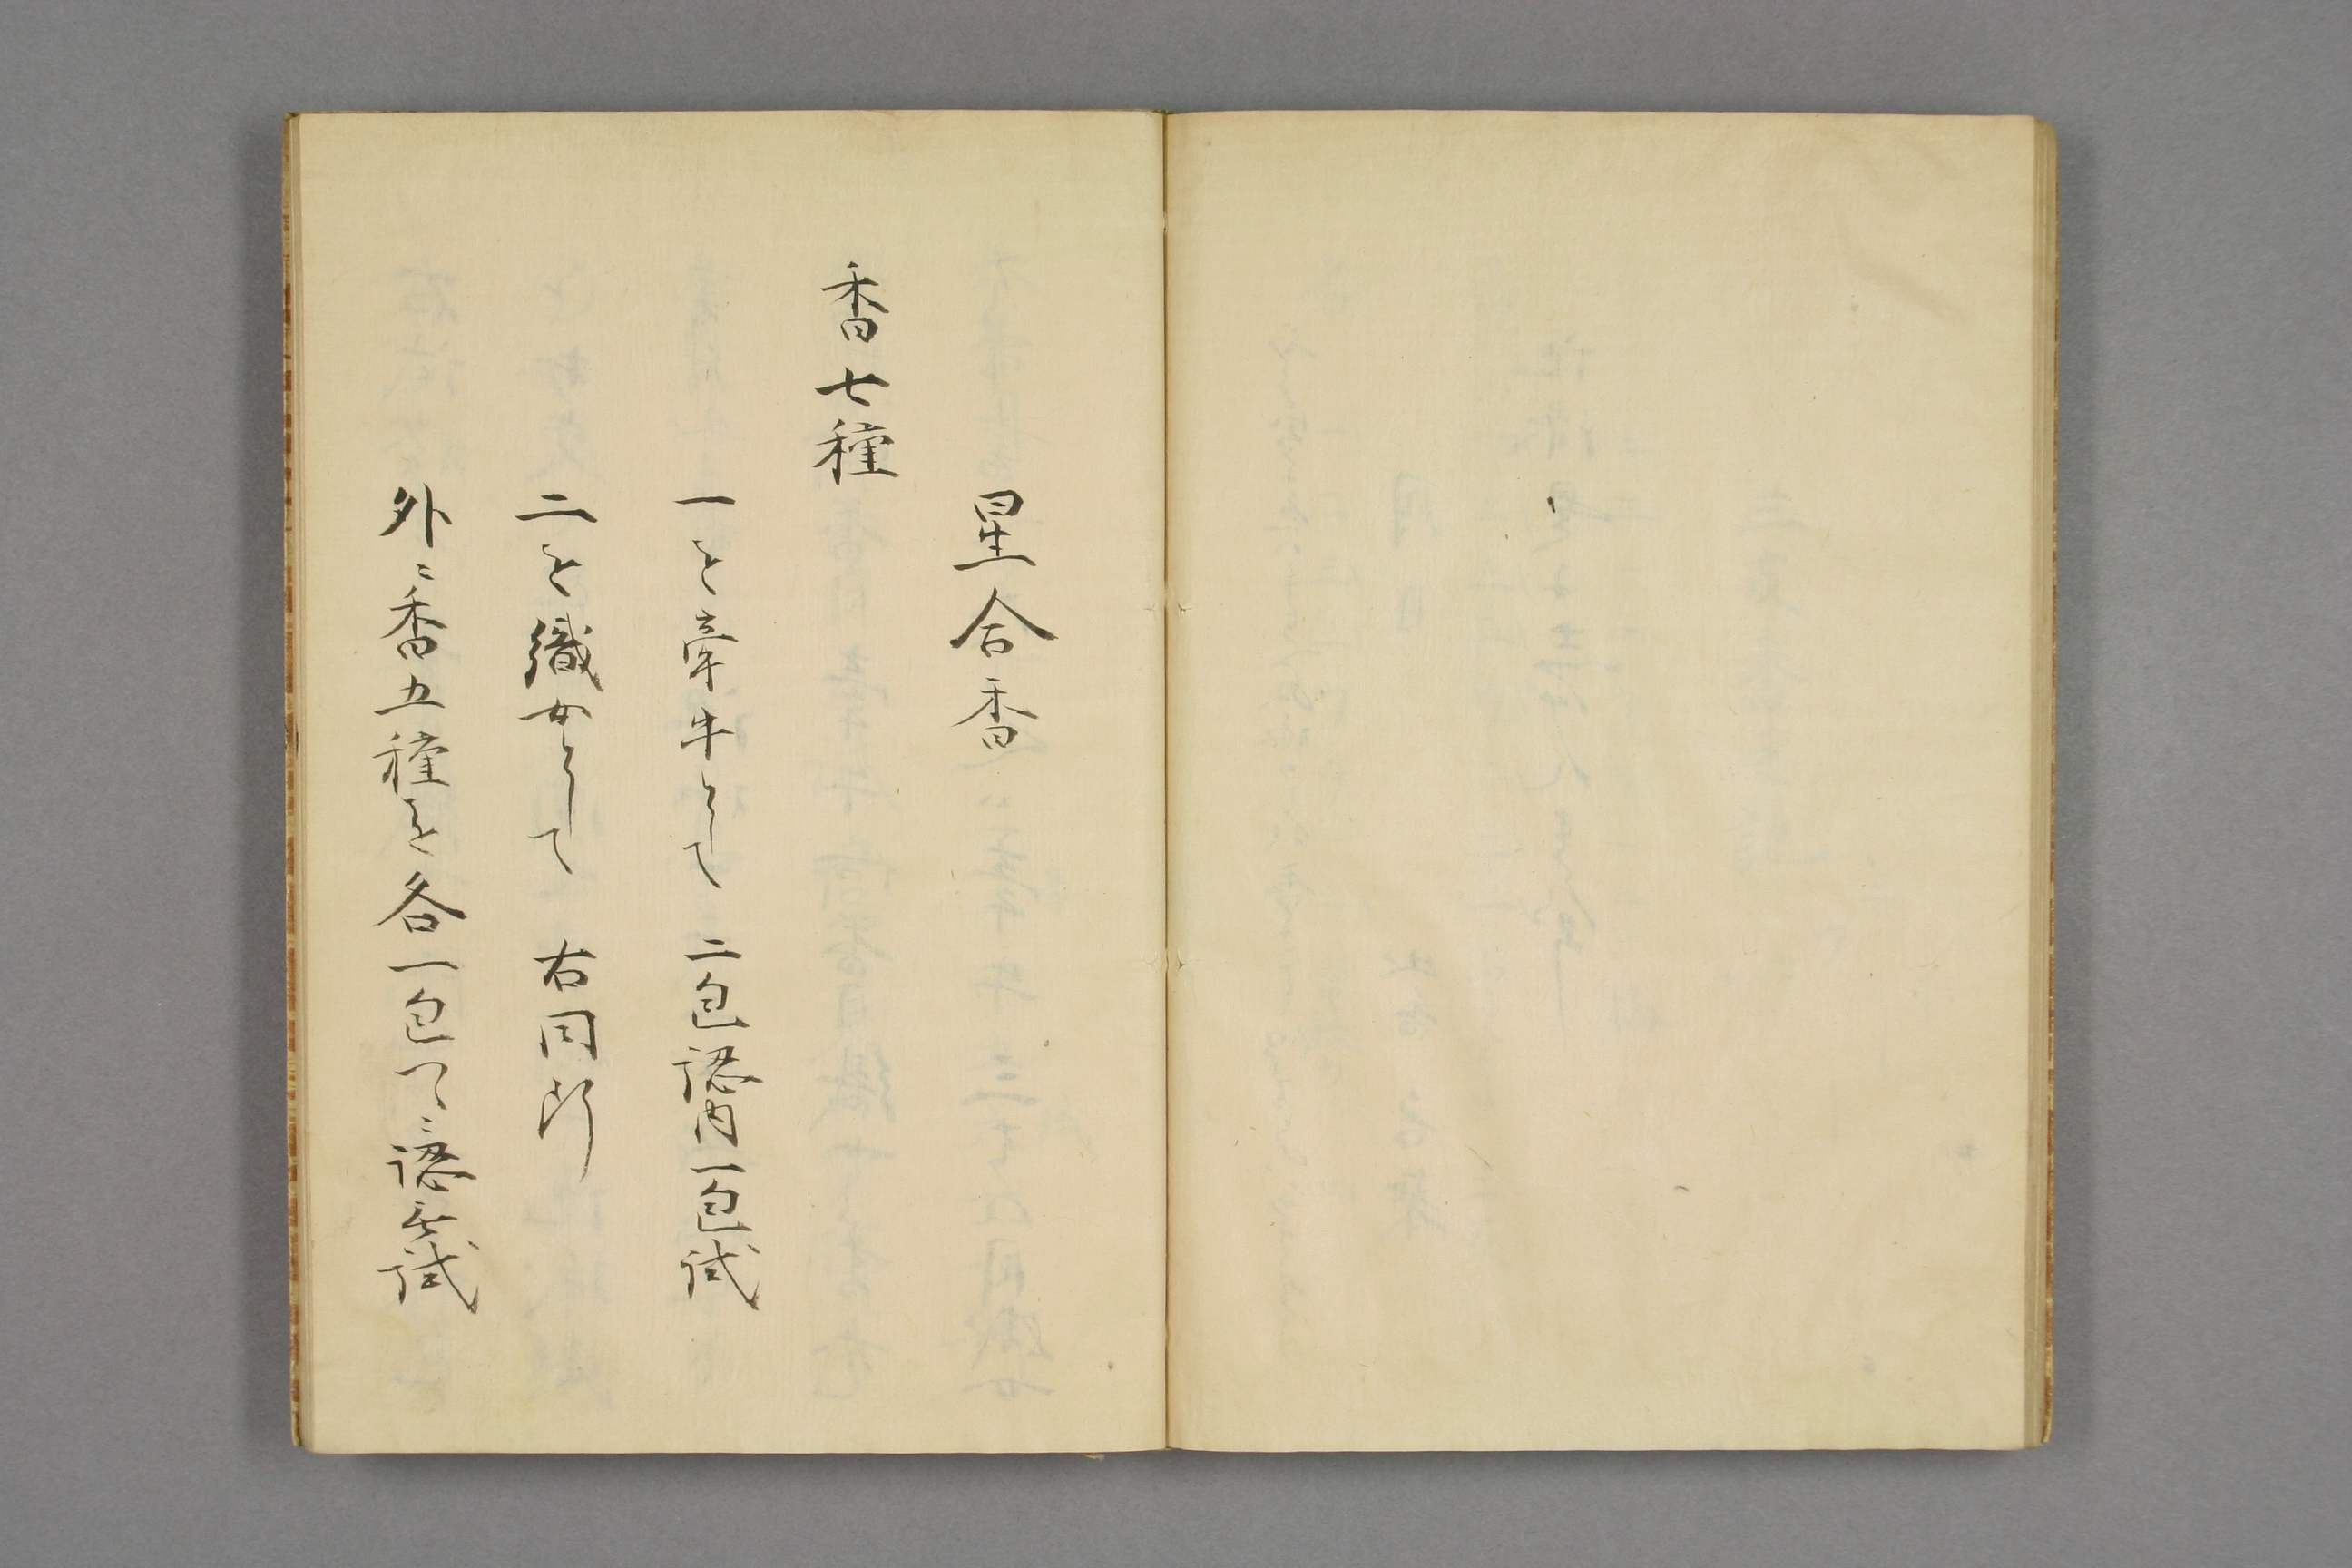 星合香
香七種
一を牽牛として 二包認内一包試
二を織女として 右同断
外ニ香五種を各一包つゝ認無試